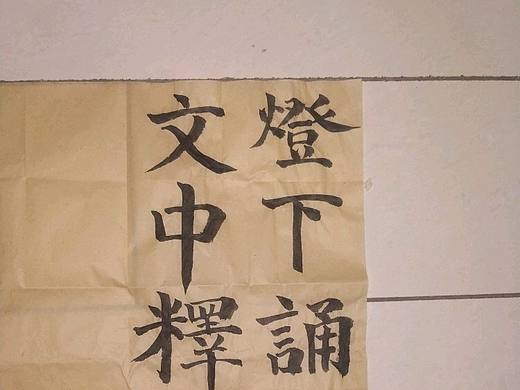 燈下誦
文中釋